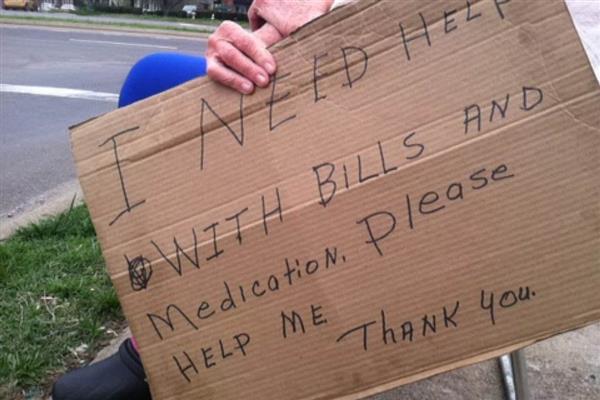 I NEED HELP
WITH BILLS AND
Medication. Please
HELP ME THANK you.